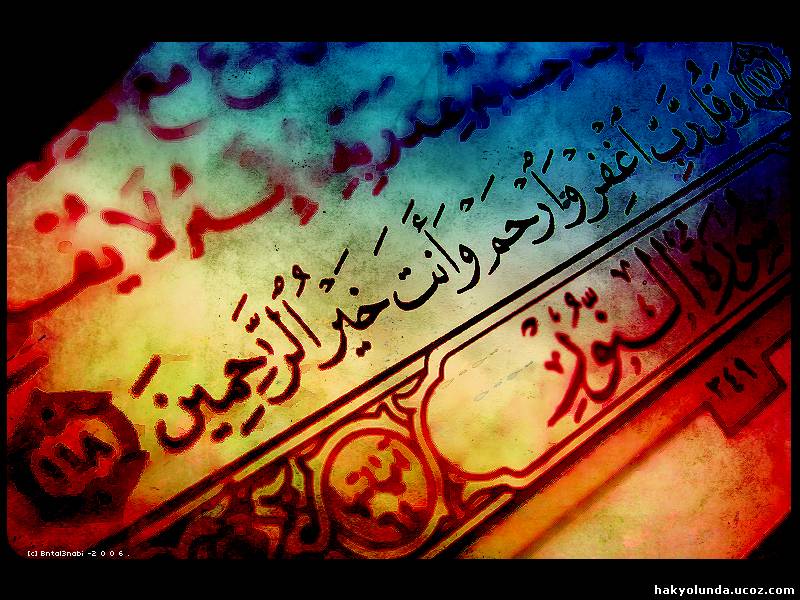 عِندَ رَبِّهِ إِنَّهُ لَا
١١٧
وَقُل رَّبِّ ٱغْفِرْ وَٱرْحَمْ وَأَنتَ خَيْرُ ٱلرَّٰحِمِينَ ١١٨
سُورَةُ النُّورِ
٣٤٩
(c) Bntal3nabi -2 0 0 6 .
hakyolunda.ucoz.com